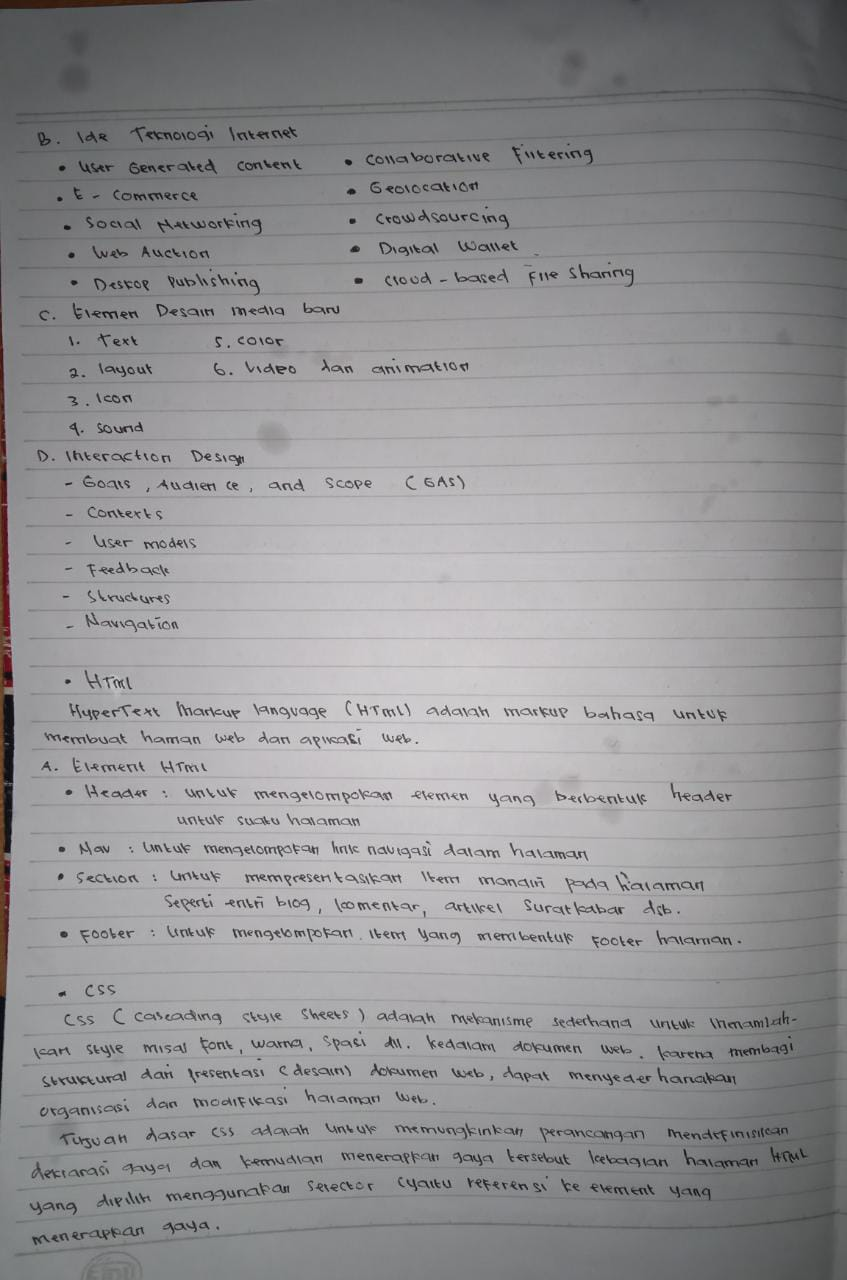 B. Ide Teknologi Internet
• User Generated content • Collaborative Filtering
• E - Commerce • Geolocation
• Social Networking • Crowdsourcing
• Web Auction • Digital Wallet
• Deskop Publishing • Cloud - based File Sharing
C. Elemen Desain media baru
1. Text 5. Color
2. layout 6. Video dan animation
3. Icon
4. Sound
D. Interaction Design
- Goals, Audience, and Scope (GAS)
- Contexts
- User models
- Feedback
- Structures
- Navigation
• HTml
HyperText Markup language (HTml) adalah markup bahasa untuk
membuat haman web dan aplikasi web.
A. Element HTml
• Header : untuk mengelompokan elemen yang berbentuk header
untuk suatu halaman
• Nav : Untuk mengelompokan link navigasi dalam halaman
• Section : Untuk mempresentasikan Item mandiri pada halaman
Seperti entri blog, komentar, artikel Surat kabar dsb.
• Footer : Untuk mengelompokan Item yang membentuk Footer halaman.
• CSS
CSS (Cascading Style Sheets) adalah mekanisme sederhana untuk menambah-
kan style misal font, warna, spasi dll. kedalam dokumen web. karena membagi
struktural dari presentasi (desain) dokumen web, dapat menyederhanakan
organisasi dan modifikasi halaman web.
Tujuan dasar CSS adalah untuk memungkinkan perancangan mendefinisikan
deklarasi gaya dan kemudian menerapkan gaya tersebut kebagian halaman Html
yang dipilih menggunakan selector (yaitu referensi ke element yang
menerapkan gaya.